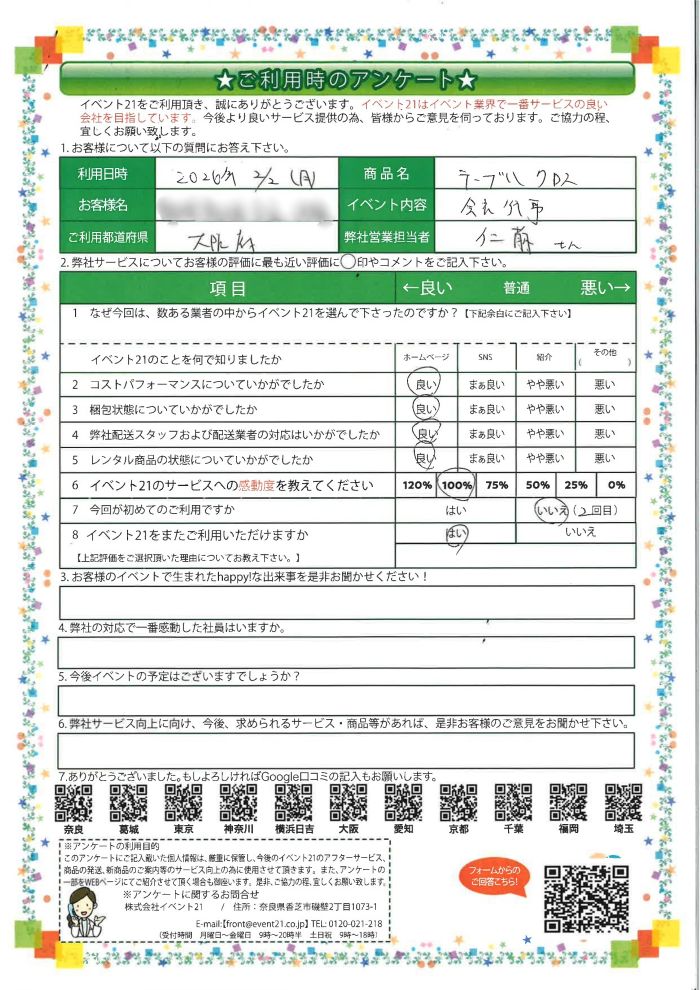 ★ご利用時のアンケート★
イベント21をご利用頂き、誠にありがとうございます。イベント21はイベント業界で一番サービスの良い
会社を目指しています。今後より良いサービス提供の為、皆様からご意見を伺っております。ご協力の程、
宜しくお願い致します。
1. お客様について以下の質問にお答え下さい。
利用日時 2026年 2/2 (月) 商品名 テーブルクロス
お客様名 イベント内容 会社行事
ご利用都道府県 大阪府 弊社営業担当者 さん
2. 弊社サービスについてお客様の評価に最も近い評価に○印やコメントをご記入下さい。
項目 ←良い 普通 悪い→
1 なぜ今回は、数ある業者の中からイベント21を選んで下さったのですか？【下記余白にご記入下さい】
イベント21のことを何で知りましたか ホームページ SNS 紹介 その他 ( )
2 コストパフォーマンスについていかがでしたか 良い まぁ良い やや悪い 悪い
3 梱包状態についていかがでしたか 良い まぁ良い やや悪い 悪い
4 弊社配送スタッフおよび配送業者の対応はいかがでしたか 良い まぁ良い やや悪い 悪い
5 レンタル商品の状態についていかがでしたか 良い まぁ良い やや悪い 悪い
6 イベント21のサービスへの感動度を教えてください 120% 100% 75% 50% 25% 0%
7 今回が初めてのご利用ですか はい いいえ (2回目)
8 イベント21をまたご利用いただけますか はい いいえ
【上記評価をご選択頂いた理由についてお教え下さい。】
3. お客様のイベントで生まれたhappy!な出来事を是非お聞かせください！
4. 弊社の対応で一番感動した社員はいますか。
5. 今後イベントの予定はございますでしょうか？
6. 弊社サービス向上に向け、今後、求められるサービス・商品等があれば、是非お客様のご意見をお聞かせ下さい。
7.ありがとうございました。もしよろしければGoogle口コミの記入もお願いします。
奈良 葛城 東京 神奈川 横浜日吉 大阪 愛知 京都 千葉 福岡 埼玉
※アンケートの利用目的
このアンケートにご記入戴いた個人情報は、厳重に保管し、今後のイベント21のアフターサービス、
商品の発送、新商品のご案内等のサービス向上の為に使用させて頂きます。また、アンケートの
一部をWEBページにてご紹介させて頂く場合も御座います。是非、ご協力の程、宜しくお願い致します。
※アンケートに関するお問合せ
株式会社イベント21 / 住所：奈良県香芝市磯壁2丁目1073-1
E-mail:【front@event21.co.jp】 TEL: 0120-021-218
(受付時間 月曜日〜金曜日 9時〜20時半 土日祝 9時〜18時)
フォームからの
ご回答こちら！